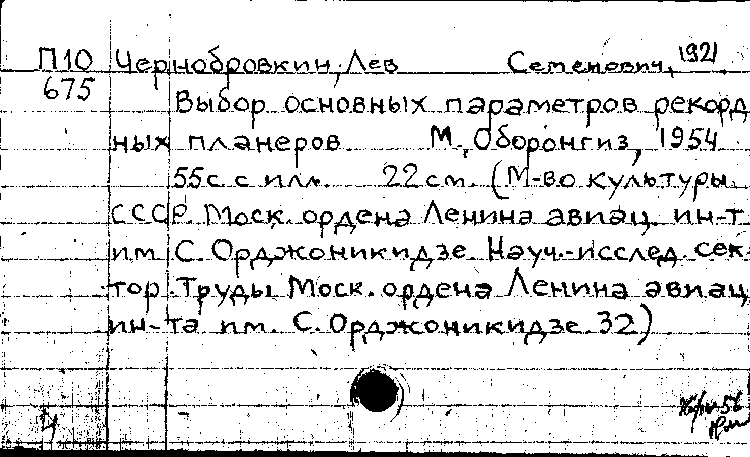 П10 Чернобровкин, Лев Семенович, 1921
675
Выбор основных параметров рекорд
ных планеров. М., Оборонгиз, 1954
55с. с илл. 22 см. (М-во культуры
СССР. Моск. ордена Ленина авиац. ин-т
им. С. Орджоникидзе. Науч.-исслед. сек-
тор. Труды Моск. ордена Ленина авиац
ин-та им. С. Орджоникидзе. 32)
4